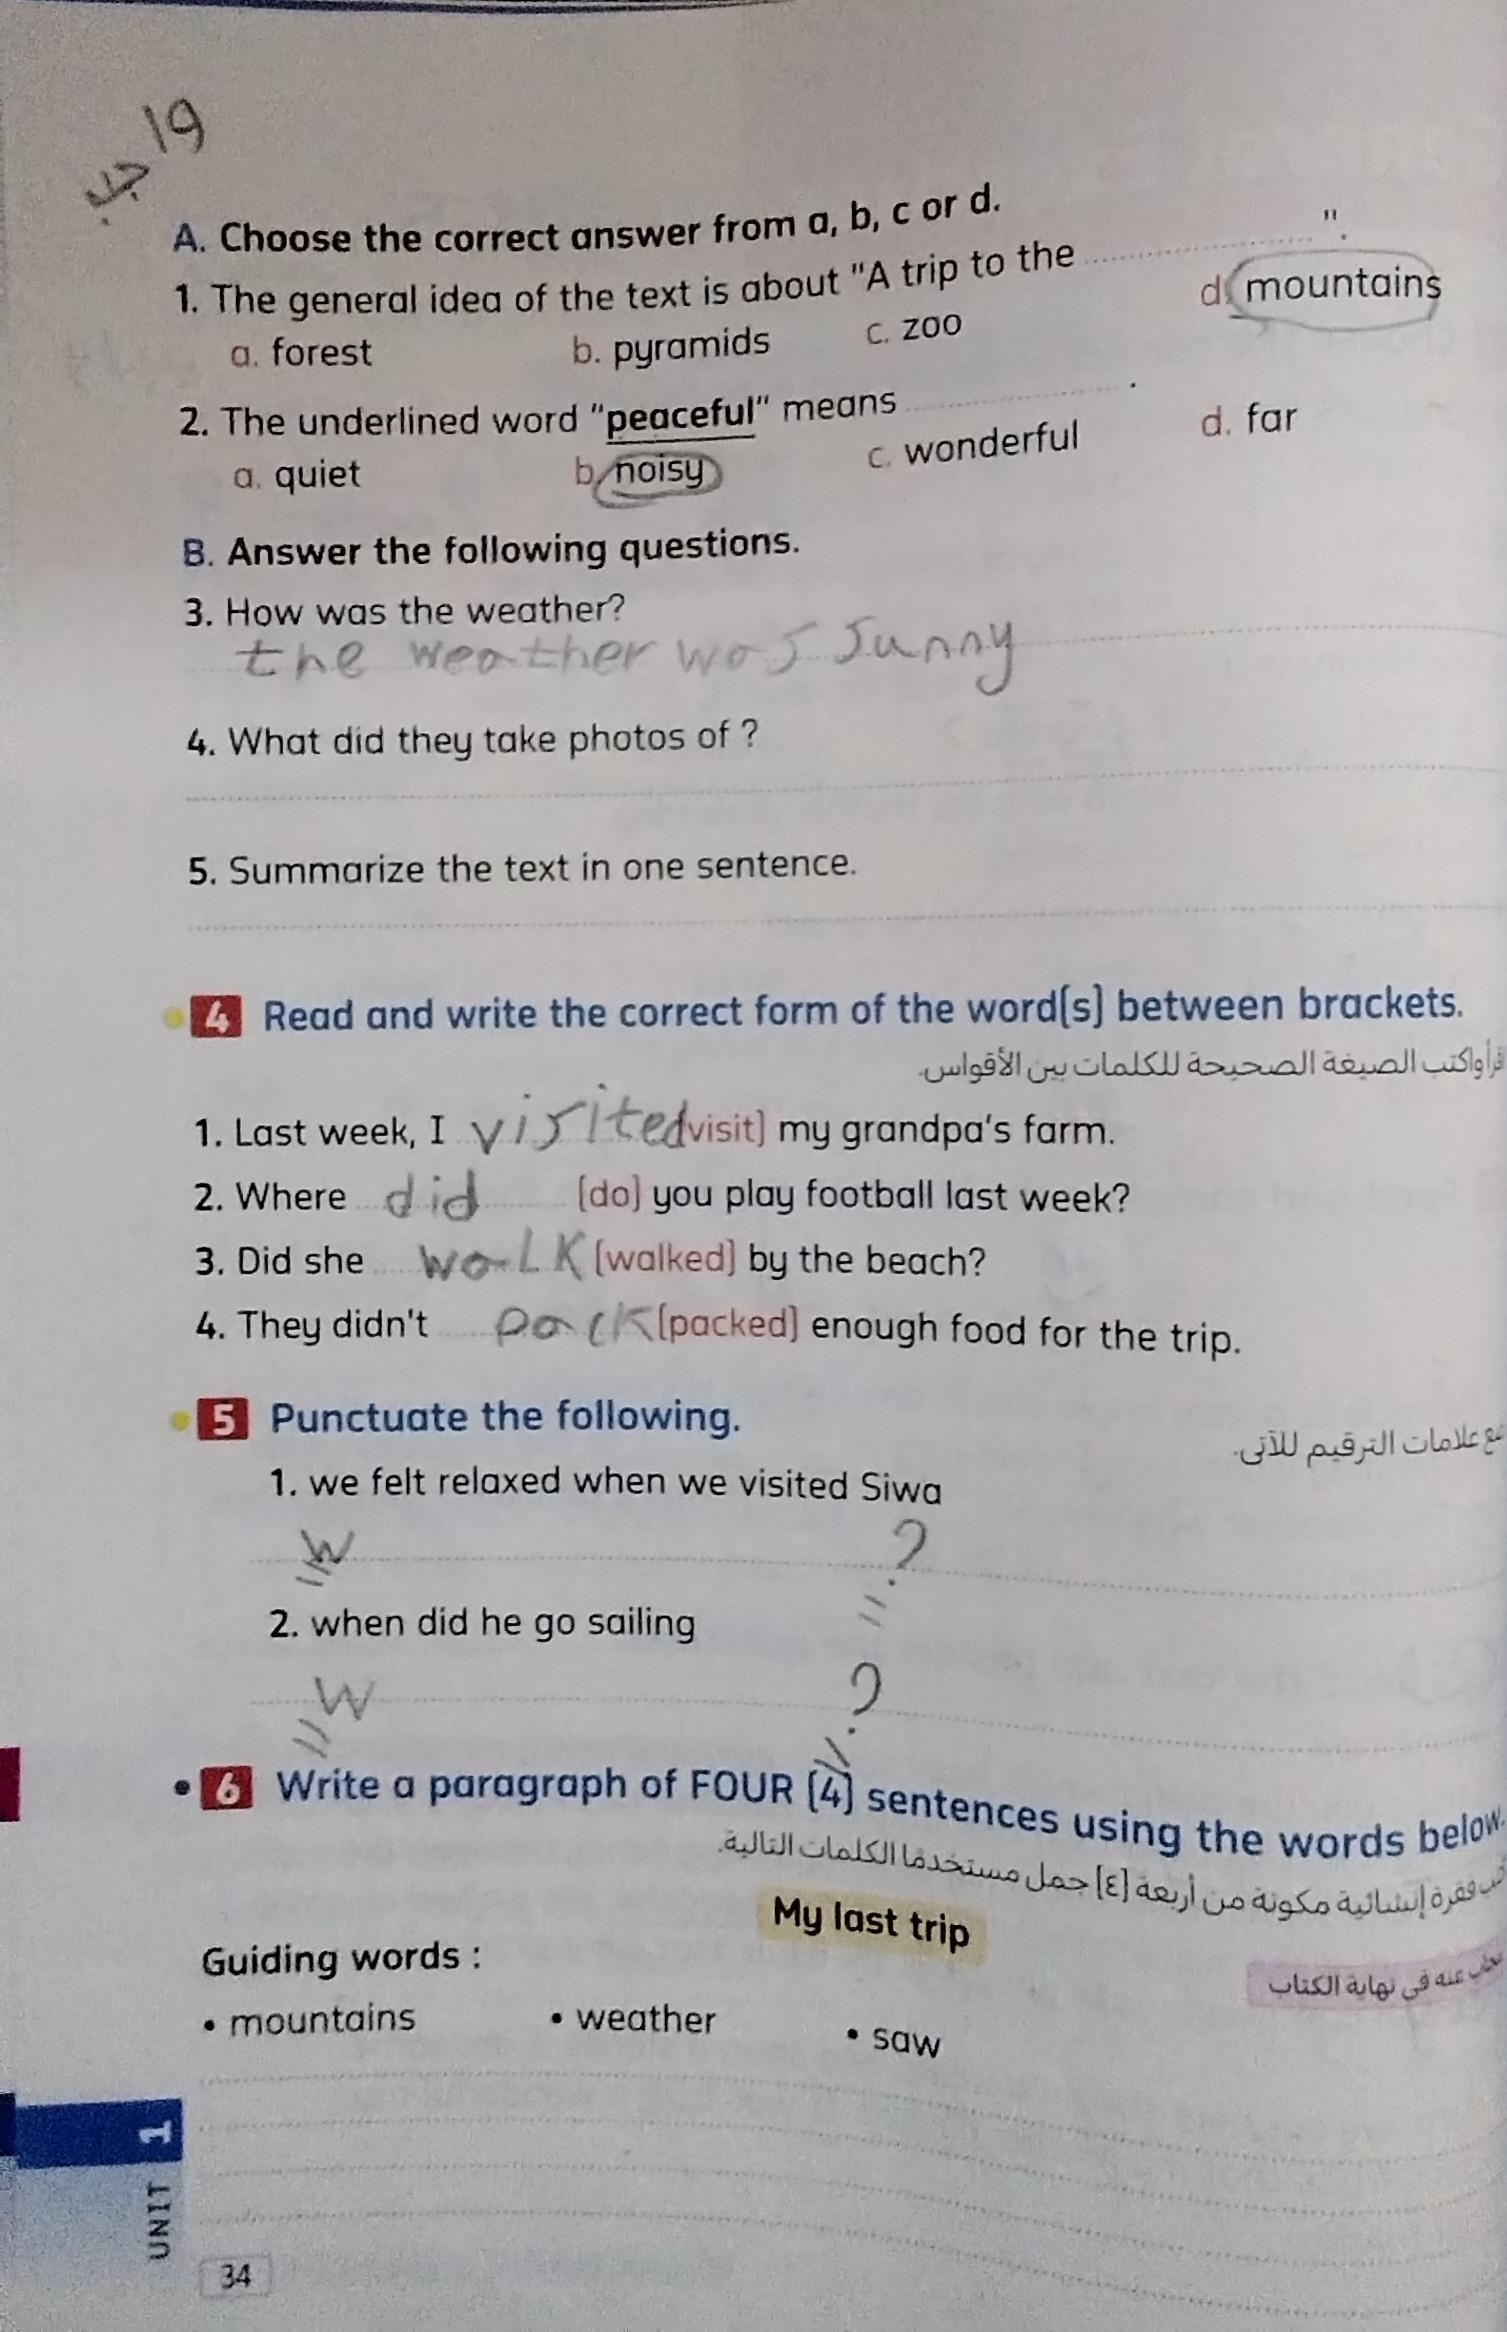 19
A. Choose the correct answer from a, b, c or d.
1. The general idea of the text is about "A trip to the ".
a. forest b. pyramids c. zoo d. mountains
2. The underlined word "peaceful" means .
a. quiet b. noisy c. wonderful d. far
B. Answer the following questions.
3. How was the weather?
the weather was sunny
4. What did they take photos of ?
5. Summarize the text in one sentence.
4 Read and write the correct form of the word(s) between brackets.
واكتب الصيغة الصحيحة للكلمات بين الأقواس.
1. Last week, I visited (visit) my grandpa's farm.
2. Where did (do) you play football last week?
3. Did she walk (walked) by the beach?
4. They didn't pack (packed) enough food for the trip.
5 Punctuate the following.
علامات الترقيم للآتى.
1. we felt relaxed when we visited Siwa
W ?
2. when did he go sailing
W ?
6 Write a paragraph of FOUR (4) sentences using the words below.
فقرة إنشائية مكونة من أربعة [٤] جمل مستخدمًا الكلمات التالية.
My last trip
عنه فى نهاية الكتاب
Guiding words :
• mountains • weather • saw
UNIT 1
34